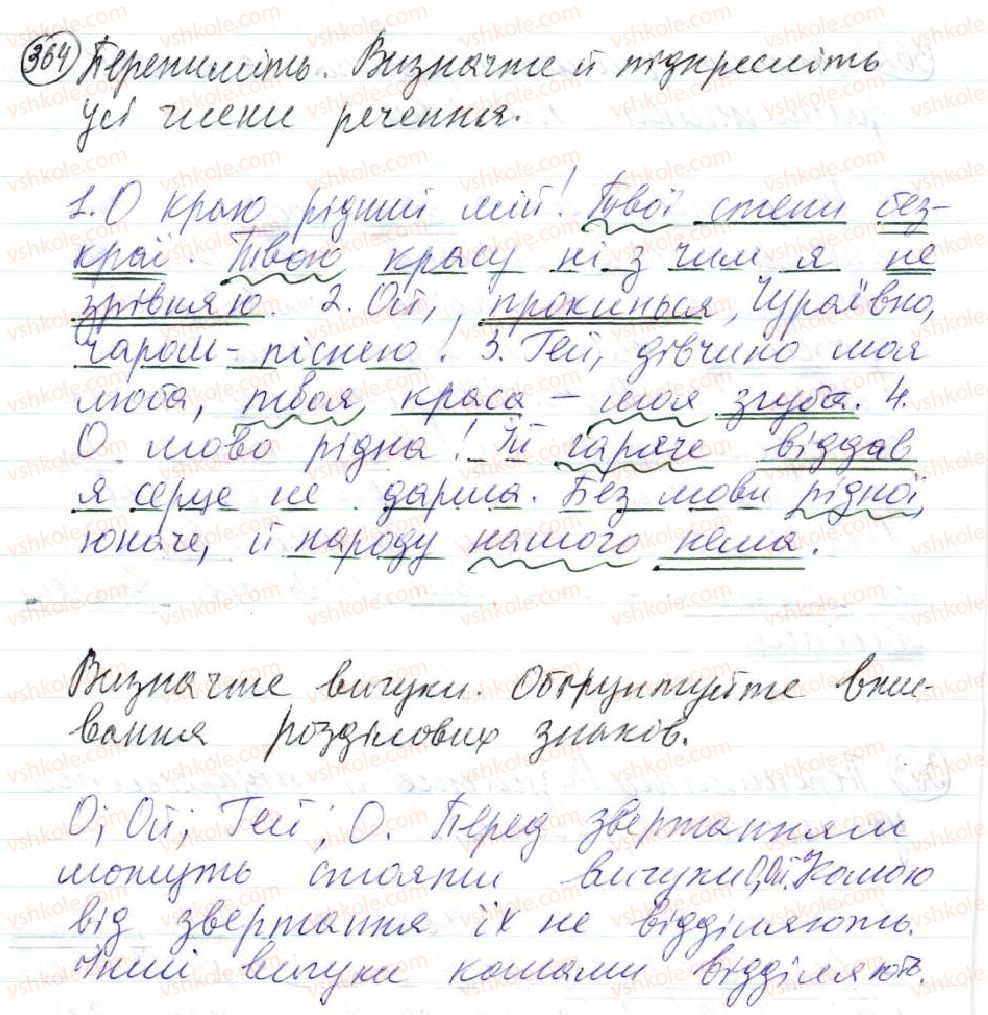 364 Перепишіть. Визначте й підкресліть
усі члени речення.
1. О краю рідний мій! Твої степи без-
краї. Твою красу ні з чим я не
зрівняю. 2. Ой, прокинься, Чураївно,
чаром-піснею! 3. Гей, дівчино моя
люба, твоя краса – моя згуба. 4.
О мово рідна! Їй гаряче віддав
я серце не дарма. Без мови рідної,
юначе, й народу нашого нема.
Визначте вигуки. Обґрунтуйте вжи-
вання розділових знаків.
О; Ой; Гей; О. Перед звертанням
можуть стояти вигуки О, Ой. Комою
від звертання їх не відділяють.
Інші вигуки комами відділяють.